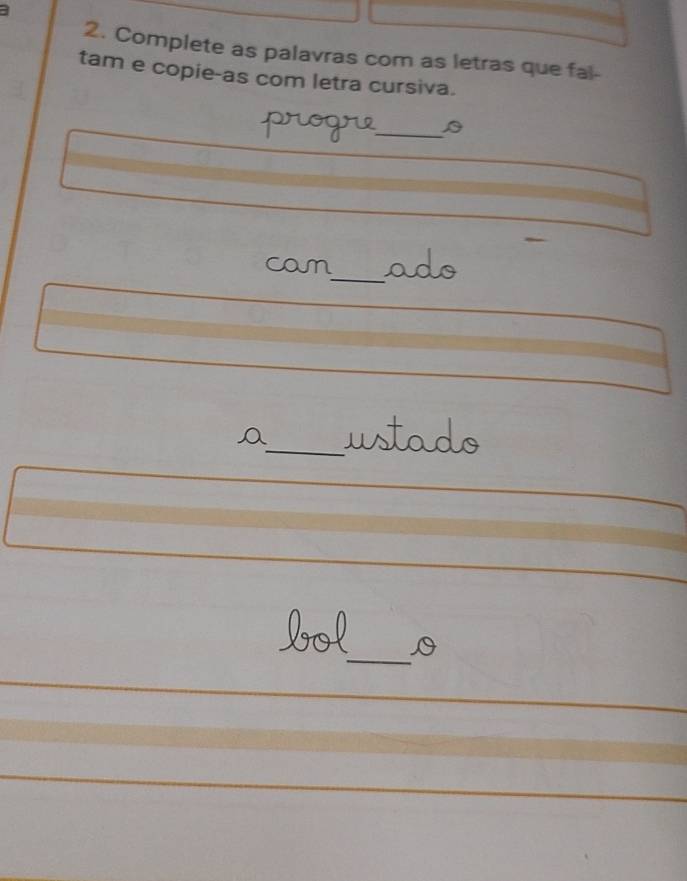 2. Complete as palavras com as letras que fal-
tam e copie-as com letra cursiva.
progre____o
can____ado
a____ustado
bol____o